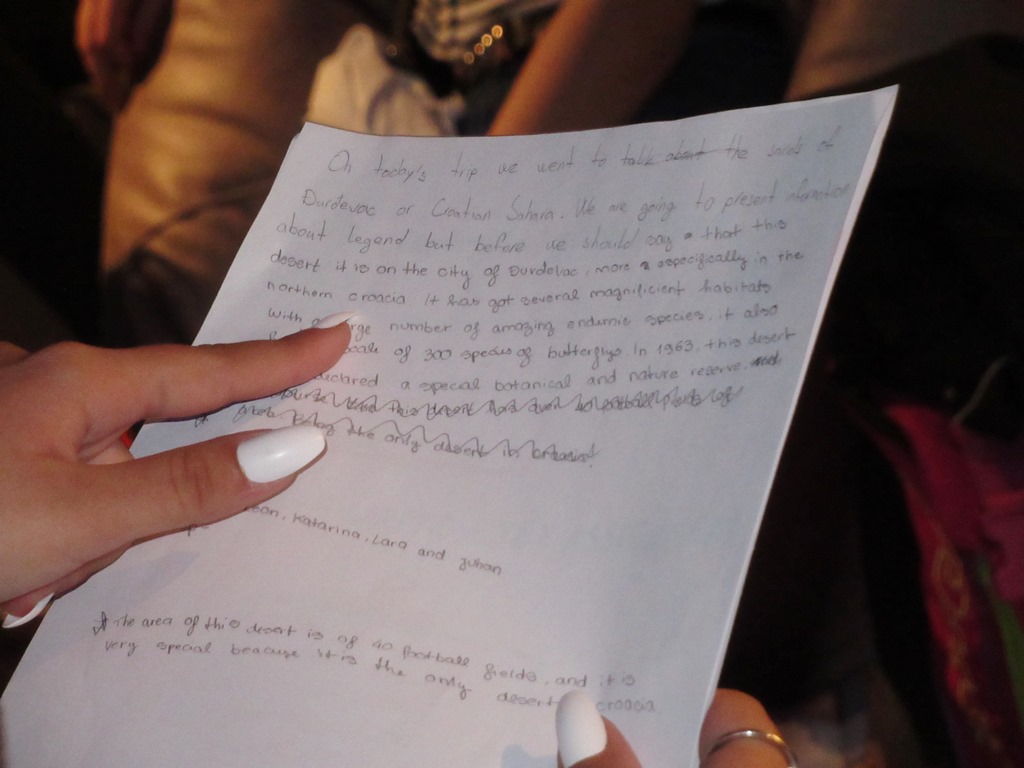 On today's trip we went to talk about the sands of
Đurđevac or Croatian Sahara. We are going to present information
about legend but before we should say that this
desert it is on the city of Durdevac, more especifically in the
northern croacia It has got several magnificient habitats
With a large number of amazing endemic species, it also
of 300 species of butterflys. In 1963, this desert
declared a special botanical and nature reserve.
this desert has over 40 football fields of
the only desert in
Katarina, Lara and
The area of this desert is of 40 football fields, and it is
very special beacause it is the only desert croacia